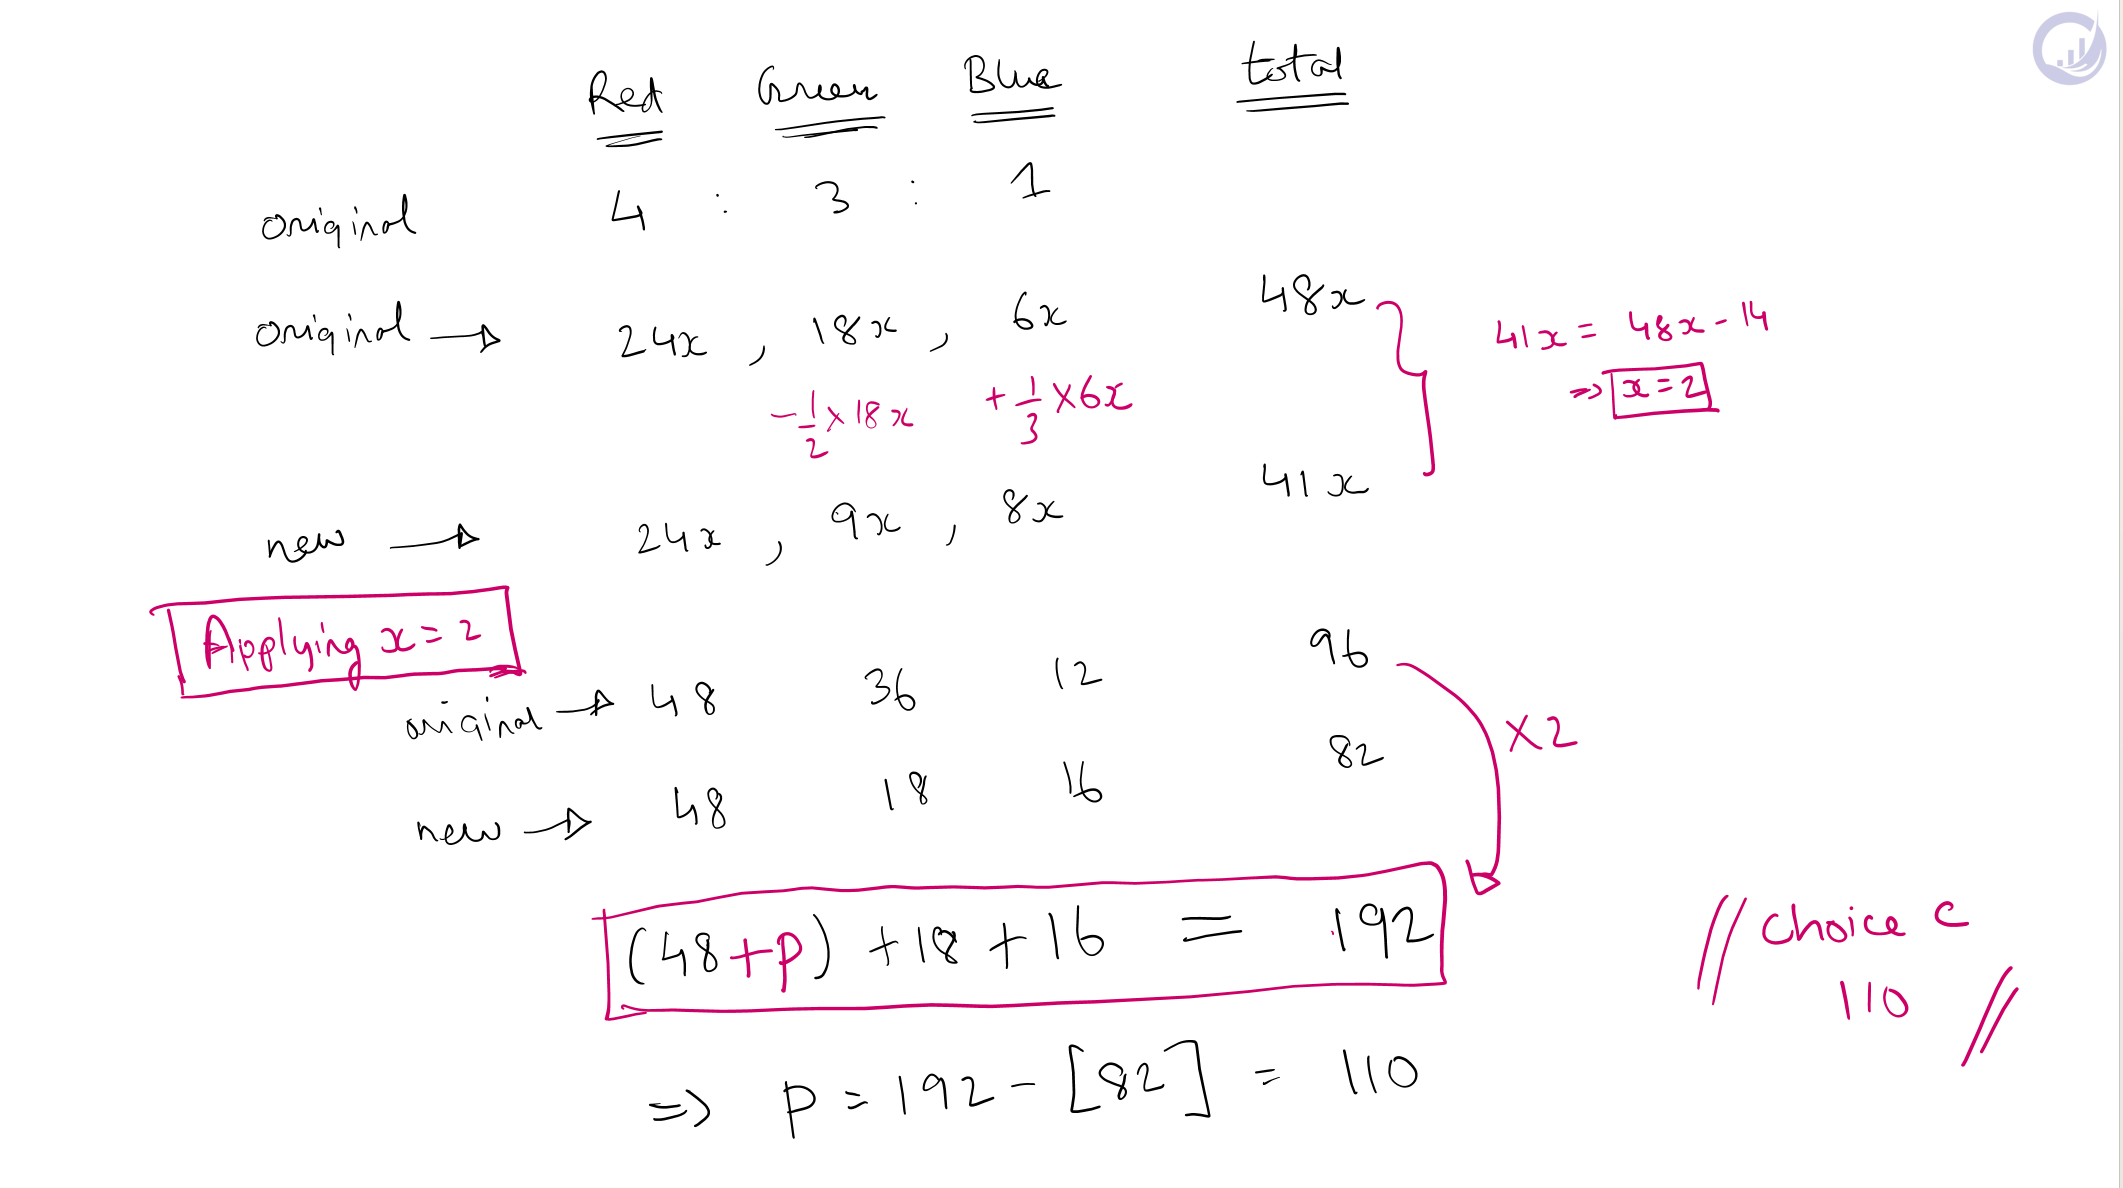 Red Green Blue total
original 4 : 3 : 1
original → 24x , 18x , 6x 48x
41x = 48x - 14
⇒ x = 2
- 1/2 × 18x + 1/3 × 6x
new → 24x , 9x , 8x 41x
Applying x = 2
original → 48 36 12 96
×2
new → 48 18 16 82
(48+p) + 18 + 16 = 192
// Choice C
110 //
⇒ p = 192 - [82] = 110